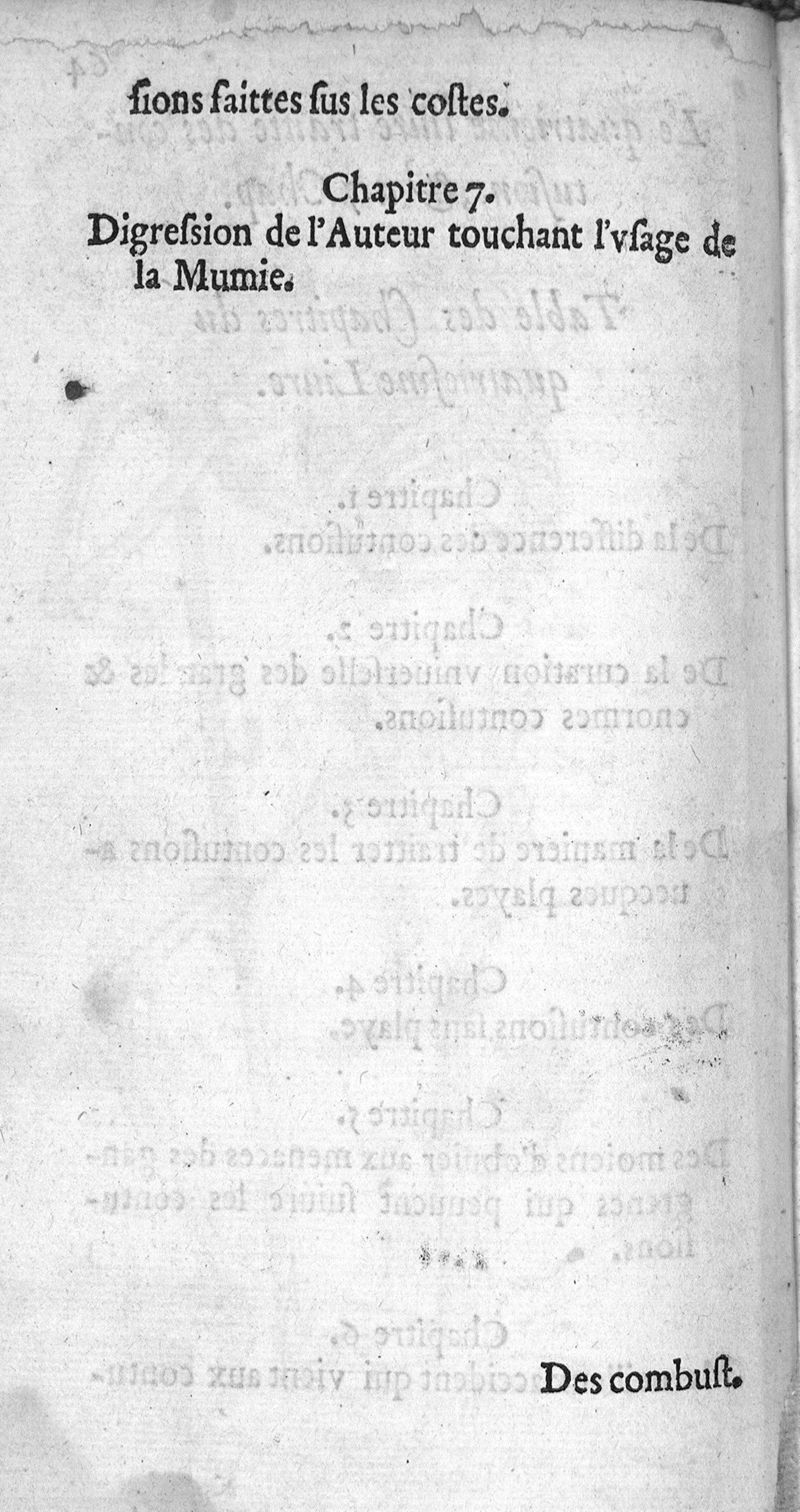 ſions faittes ſus les coſtes.
Chapitre 7.
Digreſsion de l'Auteur touchant l'vſage de
la Mumie.
Des combuſt.